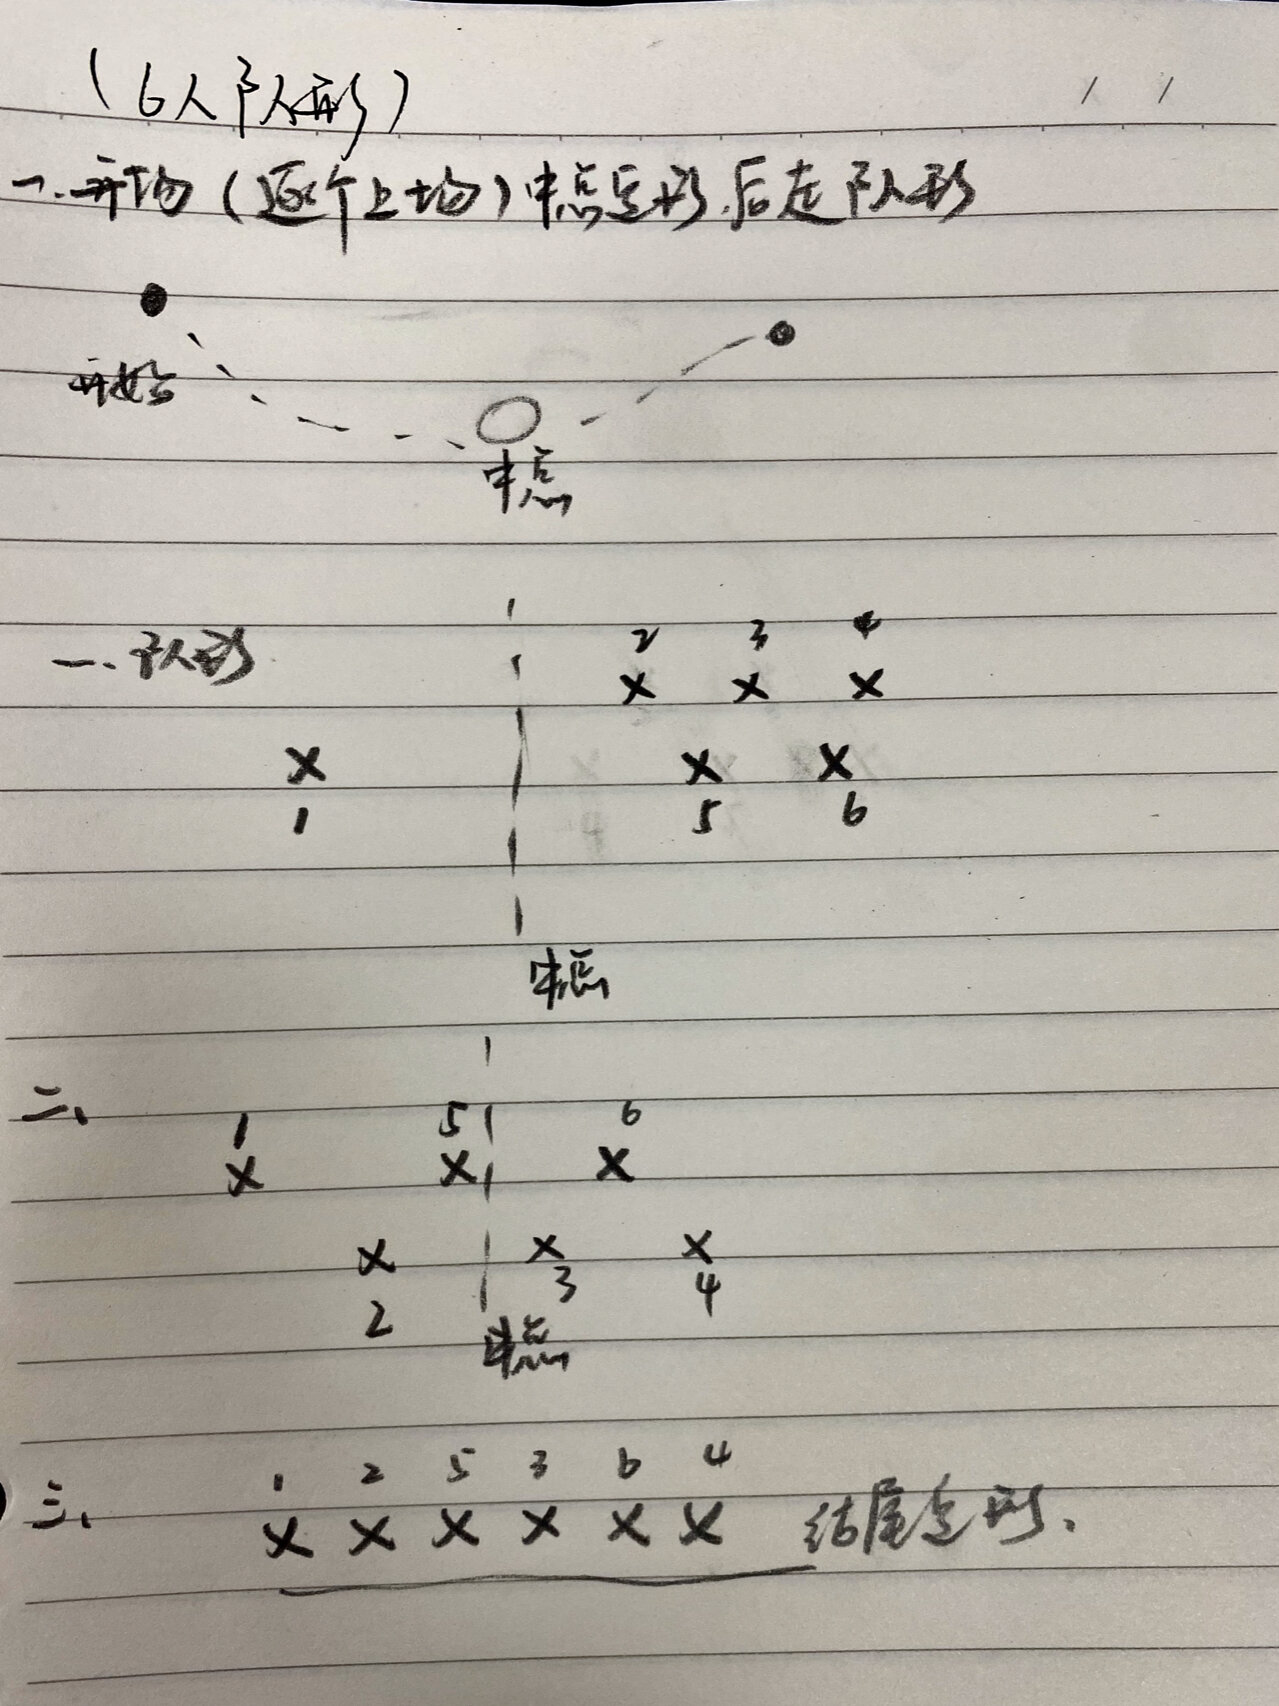 （6人队形）
一.开场（逐个上场）中点定形.后走队形
开始
中点
一.队形
2 3 4
x x x
x x x
1 5 6
中点
二、
1 5 6
x x x
x x x
2 3 4
中点
1 2 5 3 6 4
三、 x x x x x x 结尾定形.